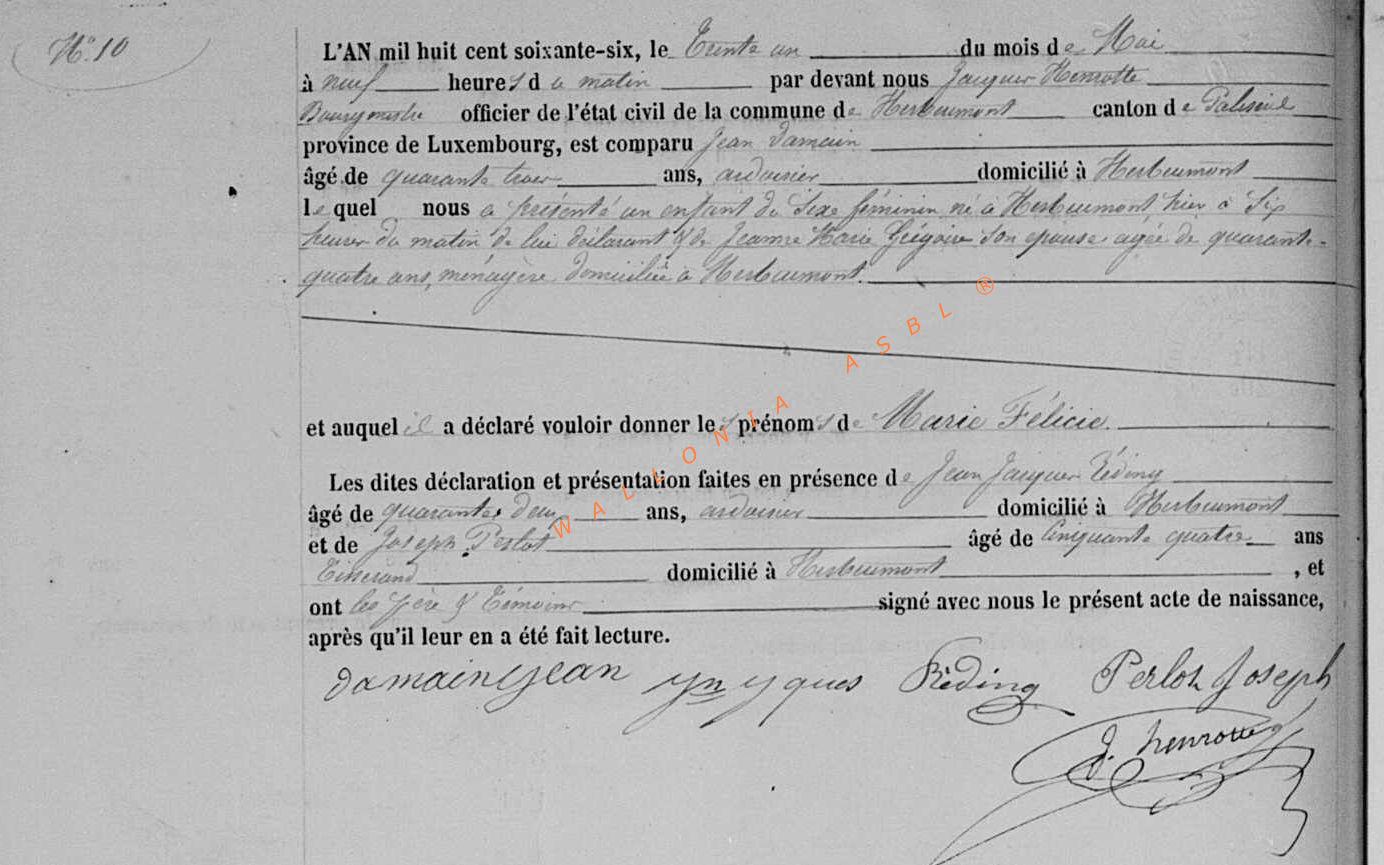 N° 10
L'AN mil huit cent soixante-six, le Trente un du mois de Mai
à neuf heures du matin par devant nous Jacques Henrotte
Bourgmestre officier de l'état civil de la commune de Herbeumont canton de Paliseul
province de Luxembourg, est comparu Jean Damain
âgé de quarante trois ans, ardoisier domicilié à Herbeumont
le quel nous a présenté un enfant du sexe féminin né à Herbeumont hier à six
heures du matin de lui déclarant & de Jeanne Marie Grégoire son épouse agée de quarante-
quatre ans, ménagère domiciliée à Herbeumont.
et auquel il a déclaré vouloir donner les prénoms de Marie Félicie.
Les dites déclaration et présentation faites en présence de Jean Jacques Réding
âgé de quarante deux ans, ardoisier domicilié à Herbeumont
et de Joseph Perlot âgé de Cinquante quatre ans
Tisserand domicilié à Herbeumont , et
ont les père & témoins signé avec nous le présent acte de naissance,
après qu'il leur en a été fait lecture.
damain jean Réding Perlot Joseph
J. henrotte
WALLONIA ASBL ®